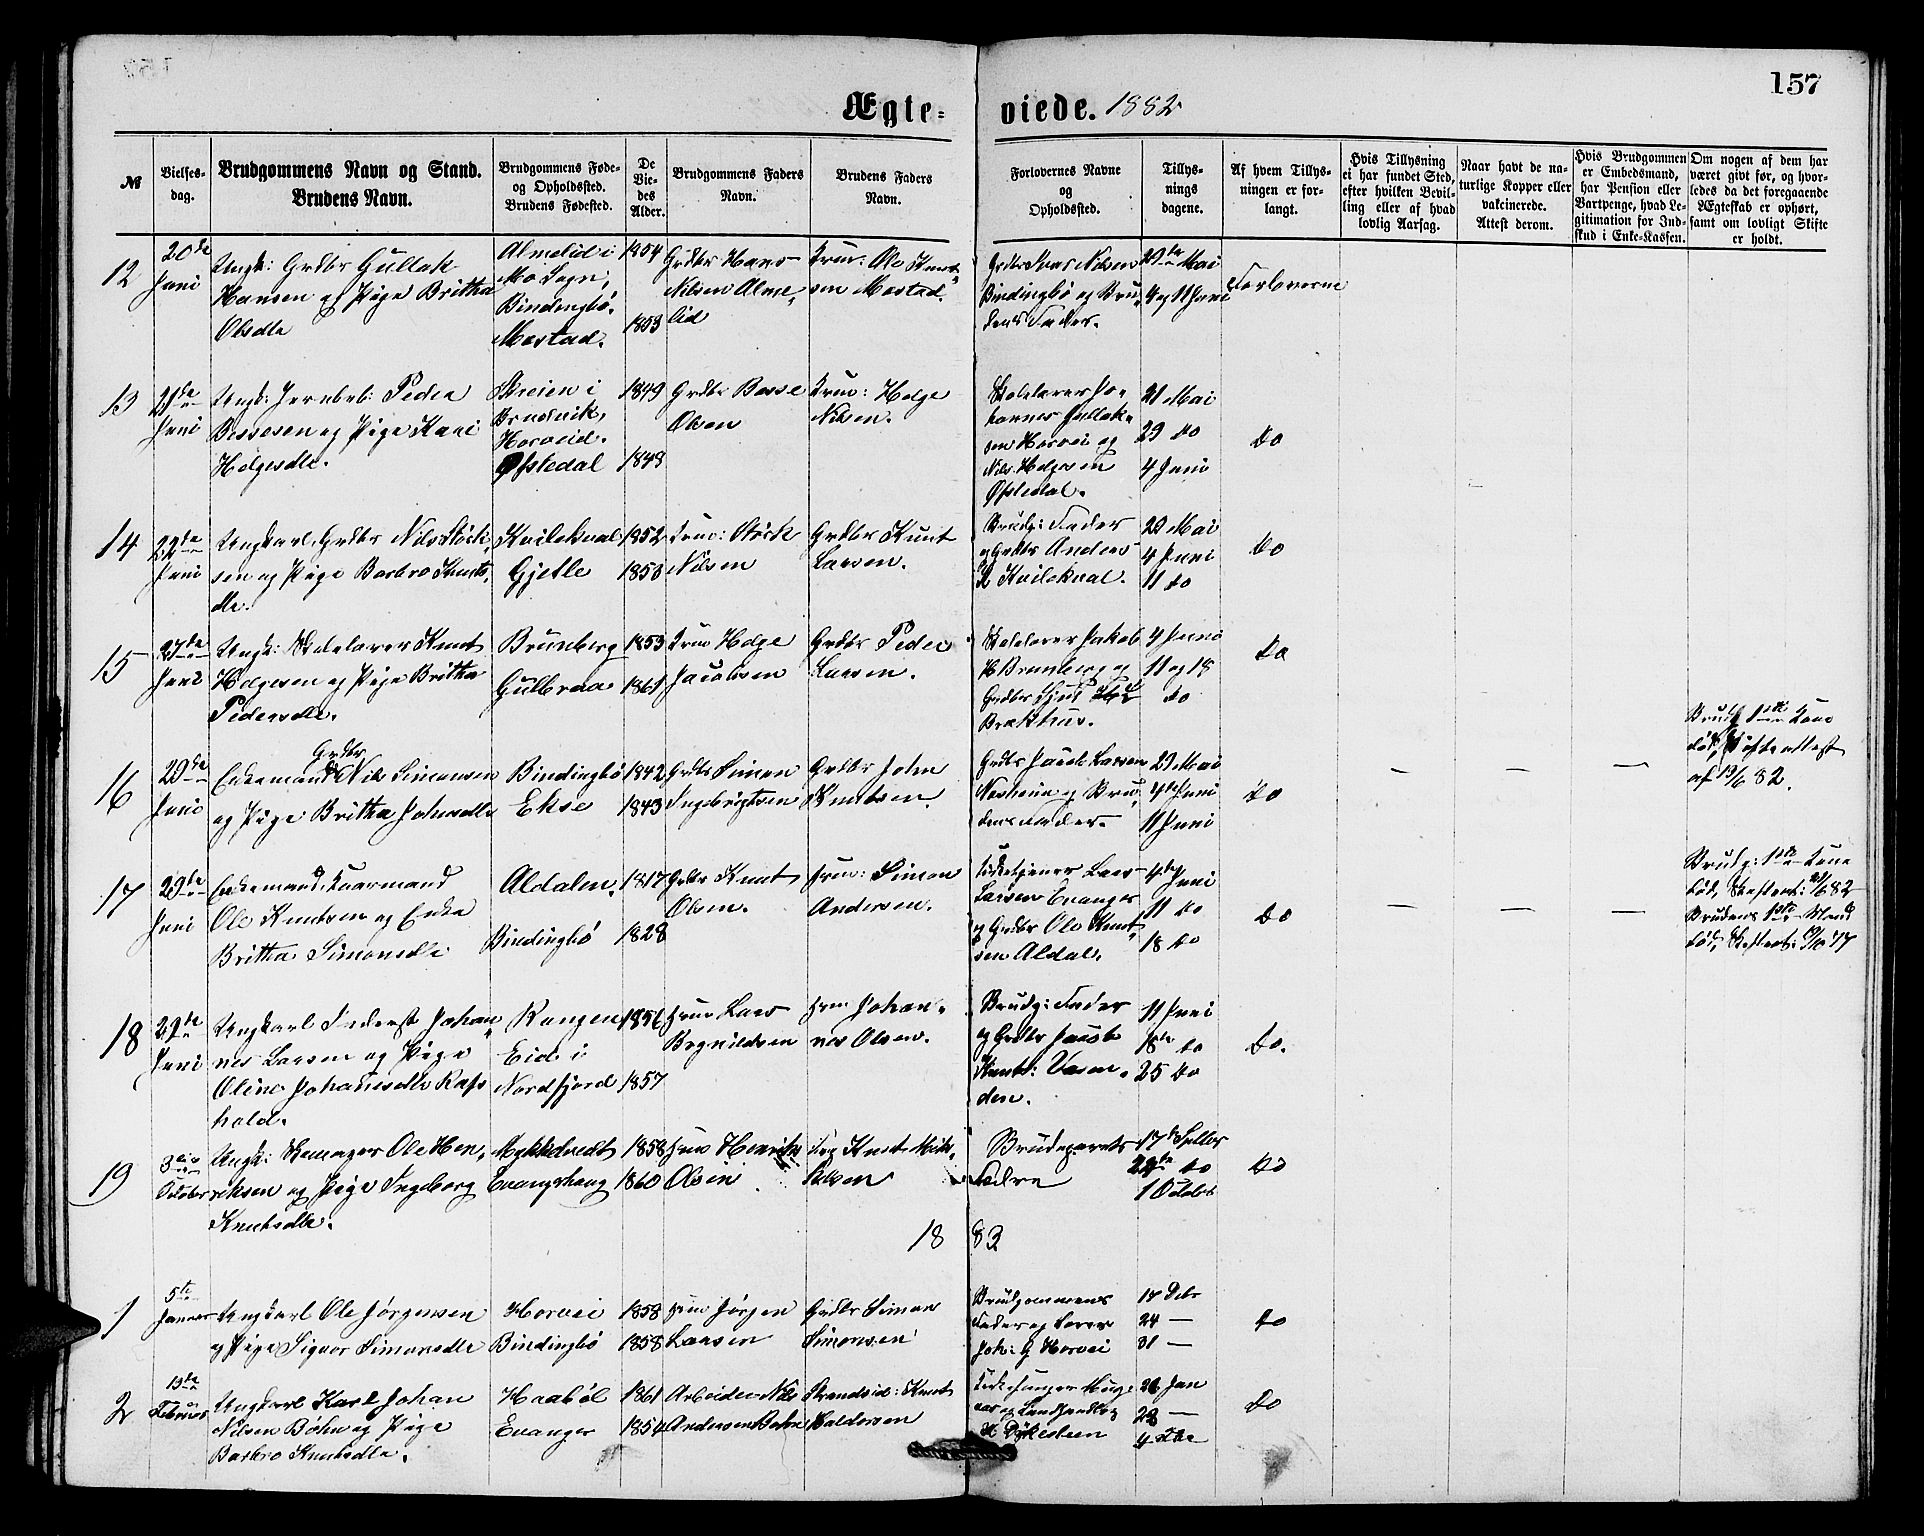 157
Ægte-
viede. 1882
№
Vielses-
dag.
Brudgommens Navn og Stand.
Brudens Navn.
Brudgommens Føde-
og Opholdssted.
Brudens Fødested.
De
Vie-
des
Alder.
Brudgommens Faders
Navn.
Brudens Faders
Navn.
Forlovernes Navne
og
Opholdssted.
Tillys-
nings
dagene.
Af hvem Tillys-
ningen er for-
langt.
Hvis Tillysning
ei har fundet Sted,
efter hvilken Bevil-
ling eller af hvad
lovlig Aarsag.
Naar havt de na-
turlige Kopper eller
vakcinerede.
Attest derom.
Hvis Brudgommen
er Embedsmand,
har Pension eller
Vartpenge, hvad Le-
gitimation for Ind-
skud i Enke-Kassen.
Om nogen af dem har
været givt før, og hvor-
ledes da det foregaaende
Ægteskab er ophørt,
samt om lovligt Skifte
er holdt.
12
20de
Juni
Ungk: Grdbr Gullak
Hansen og Pige Britha
Olsdle
Almelid i
Mo Sogn,
Bindingbø.
Mestad.
1854
1853
Grdbr Hans
Nilsen Alme-
lid
Ole Knut-
sen Mestad.
Grdbr Nilsen
Bindingbø og Bru-
dens Fader.
29de Mai
4 og 11 Juni
Forloverne
13
21de
Juni
Ungk: Peder
Bessesen og Pige Kari
Helgesdle.
Skreien i
Bruvik,
Horveid.
Øfstedal
1849
1848
Grdbr Besse
Olsen
Helge
Nilsen.
Skolelærer Jo-
hannes Gullak-
sen Horvei og
Nils Helgesen
Øfstedal.
21 Mai
29 do
4 Juni
do
14
22de
Juni
Ungkarl Grdbr Nils Størk-
sen og Pige Barbro Knuts-
dle.
Kvilekval
Gjelle
1852
1850
Størk
Nilsen
Grdbr Knut
Larsen.
Brudg: Fader
og Grdbr Anders
L Kvilekval.
29 Mai
4 Juni
11 do
do
15
27de
Juni
Ungk: Skolelærer Knut
Helgesen og Pige Britha
Pedersdle.
Brunberg
Gulbraa
1853
1861
Helge
Jacobsen
Grdbr Peder
Larsen.
Skolelærer Jakob
H Brunberg og
Grdbr
Brækhus.
4 Juni
11 og 18
do
do
16
29de
Juni
Grdbr
Enkemand Nils Simonsen
og Pige Britha Johnsdle
Bindingbø
Ekse
1842
1843
Grdbr Simon
Ingebrigtsen
Grdbr John
Knutsen.
Grdbr Jacob Larsen
og Bru-
dens Fader.
29 Mai
4de Juni
11 Juni
do
—
—
—
Brudg 1ste Kone
død, Skifteattest
af 13/6 82.
17
29de
Juni
Enkemand, Kaarmand
Ole Knutsen og Enke
Britha Simonsdle
Aldalen.
Bindingbø
1817
1828
Grdbr Knut
Olsen.
Simon
Andersen.
Kirketjener Lars
Larsen Evanger
og Grdbr Ole Knut-
sen Aldal.
4de Juni
11 do
18 do
do
—
—
—
Brudg: 1ste Kone
død, Skifteat: /6 82
Brudens 1ste Mand
død, Skifteat: 77
18
29de
Juni
Ungkarl Inderst Johan-
nes Larsen og Pige
Oline Johanesdle
hold.
Rangen
Eid i
Nordfjord
1856
1857
Lars
Bogvildsen
Johan-
nes Olsen.
Brudg: Fader
og Grdbr Jacob
Knuts: Vasen-
den.
11 Juni
18de do
25 do
do.
19
3die
October
Ungk: Skomager Ole Hen-
riksen og Pige Ingeborg
Knutsdle.
Mykkeltvedt
Evangerhaug
1858
1860
Henrik
Olsen
Knut Mik-
kelsen
Brudeparets
Fædre
17de Septbr
24de do
1 Octobr
do
1883
1
5te
Januar
Ungkarl Ole Jørgensen
og Pige Sigvor Simonsdle
Horvei
Bindingbø
1858
1858
Jørgen
Larsen
Grdbr Simon
Simonsen
Brudgommens
Fader og Lærer
Joh: G Horvei
17 Debr
24 —
31 —
do
2
13de
Februar
Ungkarl Karl Johan
Nilsen Bøhn og Pige
Barbro Knutsdle.
Haabøl
Evanger
1861
1854
Arbeider Nils
Andersen Bøhn
Strandsid: Knut
Haldorsen
Kirkesanger Mug-
aas og Landhandler
K Dykesteen
21 Jan
28 —
4 Febr
do